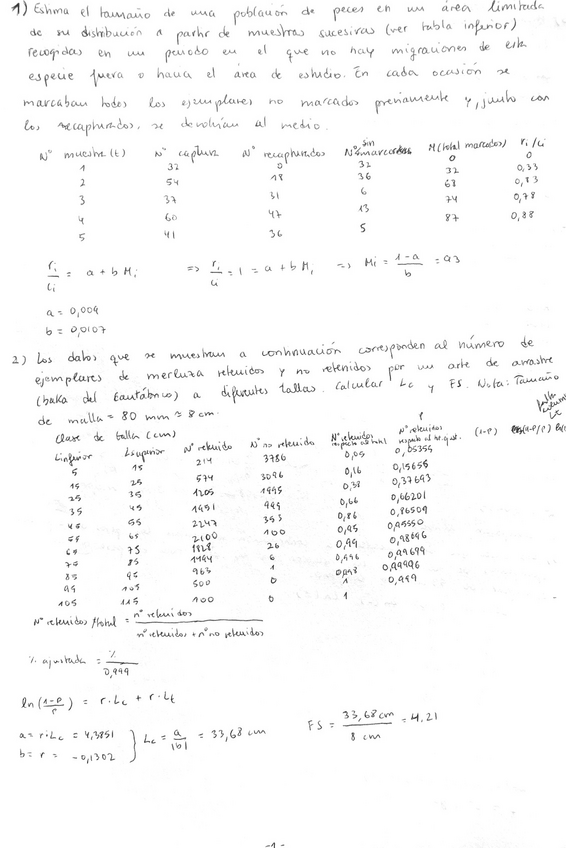 1) Estima el tamaño de una población de peces en un área limitada
de su distribución a partir de muestras sucesivas (ver tabla inferior)
recogidas en un periodo en el que no hay migraciones de esta
especie fuera o hacia el área de estudio. En cada ocasión se
marcaban todos los ejemplares no marcados previamente y, junto con
los recapturados, se devolvían al medio.
Nº muestra (t) Nº captura Nº recapturados Nº sin marcados M (total marcados) ri/ci
1 32 0 32 0 0
2 54 18 36 32 0,33
3 37 31 6 68 0,83
4 60 47 13 74 0,78
5 41 36 5 87 0,88
ri/ci = a + b Mi => ri/ci = 1 = a + b Mi => Mi = (1-a)/b = 93
a = 0,004
b = 0,0107
2) Los datos que se muestran a continuación corresponden al número de
ejemplares de merluza retenidos y no retenidos por un arte de arrastre
(baka del Cantábrico) a diferentes tallas. Calcular Lc y FS. Nota: Tamaño
de malla = 80 mm ≈ 8 cm.
Clase de talla (cm)
Linferior Lsuperior Nº retenido Nº no retenido Nº retenidos respecto al total Nº retenidos respecto al % ajust. P (1-P)
5 15 214 3786 0,05 0,05355
15 25 574 3096 0,16 0,15655
25 35 1205 1995 0,38 0,37693
35 45 1951 999 0,66 0,66201
45 55 2247 353 0,86 0,86509
55 65 2100 100 0,95 0,95550
65 75 1828 26 0,99 0,98696
75 85 1494 6 0,996 0,99699
85 95 963 1 0,998 0,99996
95 105 500 0 1 0,999
105 115 100 0 1
Nº retenidos/total = nº retenidos / nº retenidos + nº no retenidos
% ajustada = % / 0,999
ln((1-P)/P) = r·Lc + r·Lt
a = r·Lc = 4,3851
b = r = -0,1302 } Lc = a/|b| = 33,68 cm
FS = 33,68 cm / 8 cm = 4,21
-1-